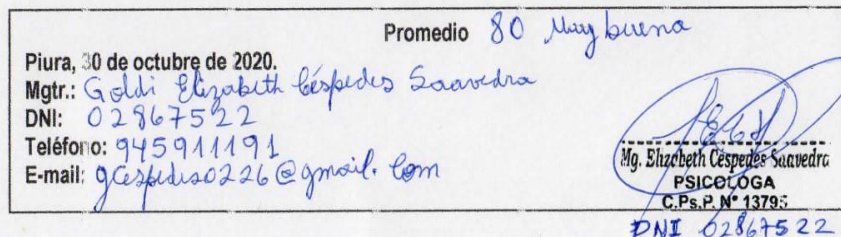 Promedio 80 Muy buena
Piura, 30 de octubre de 2020.
Mgtr.: Goldi Elizabeth Céspedes Saavedra
DNI: 02867522
Teléfono: 945911191
E-mail: gcespedes0226@gmail.com
Mg. Elizabeth Céspedes Saavedra
PSICOLOGA
C.Ps.P. N° 13795
DNI 02867522